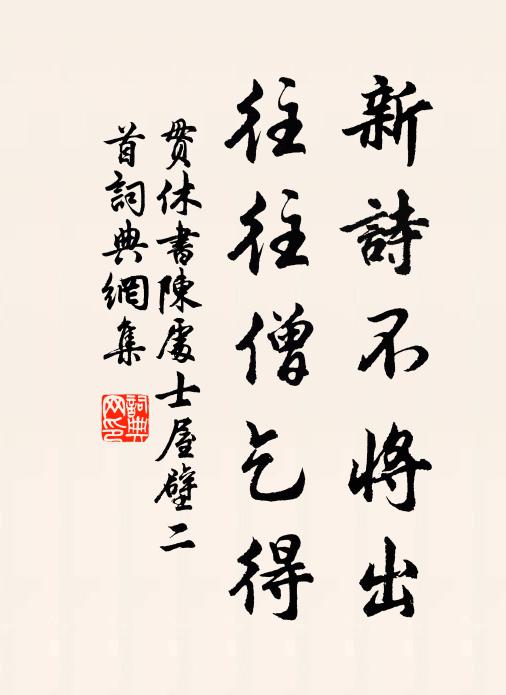 新詩不將出
往往僧乞得
貫休書陳處士屋壁二
首詞典網集
詞典
网印